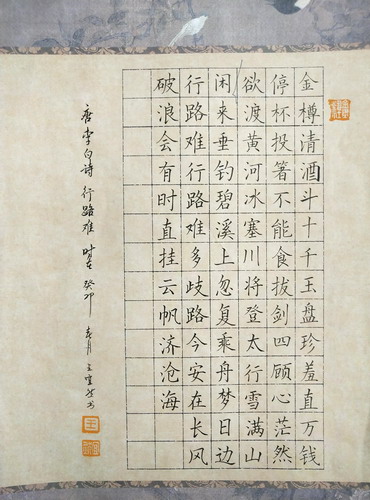 金樽清酒斗十千玉盘珍羞直万钱
停杯投箸不能食拔剑四顾心茫然
欲渡黄河冰塞川将登太行雪满山
闲来垂钓碧溪上忽复乘舟梦日边
行路难行路难多歧路今安在长风
破浪会有时直挂云帆济沧海
唐李白诗 行路难 时在 癸卯 春月 王